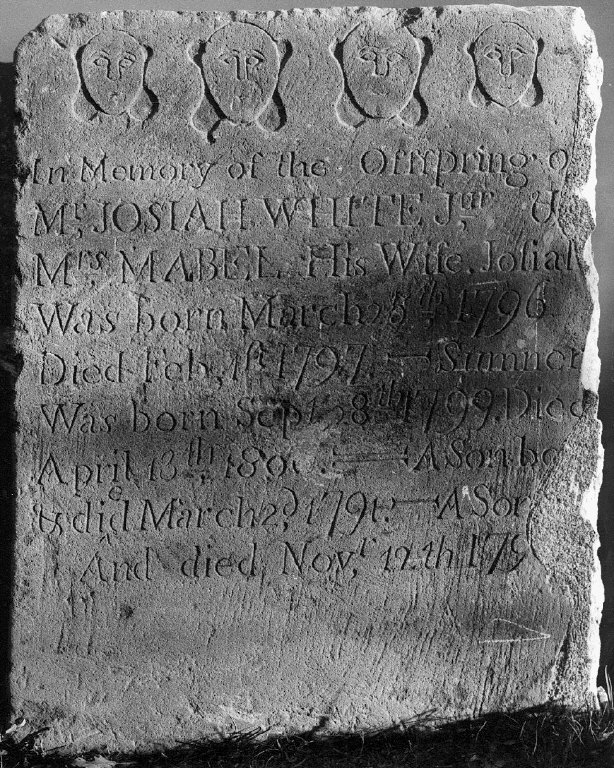 In Memory of the Offſpring o
Mr. JOSIAH WHITE Jur. &
Mrs MABEL His Wife. Joſiah
Was born March 28th 1796
Died Feb, 1ſt 1797. — Sumner
Was born Sept 28th 1799. Died
April 18th, 180 — A Son bo
& died March 2d, 179 — A Son
And died, Novr, 12th 179